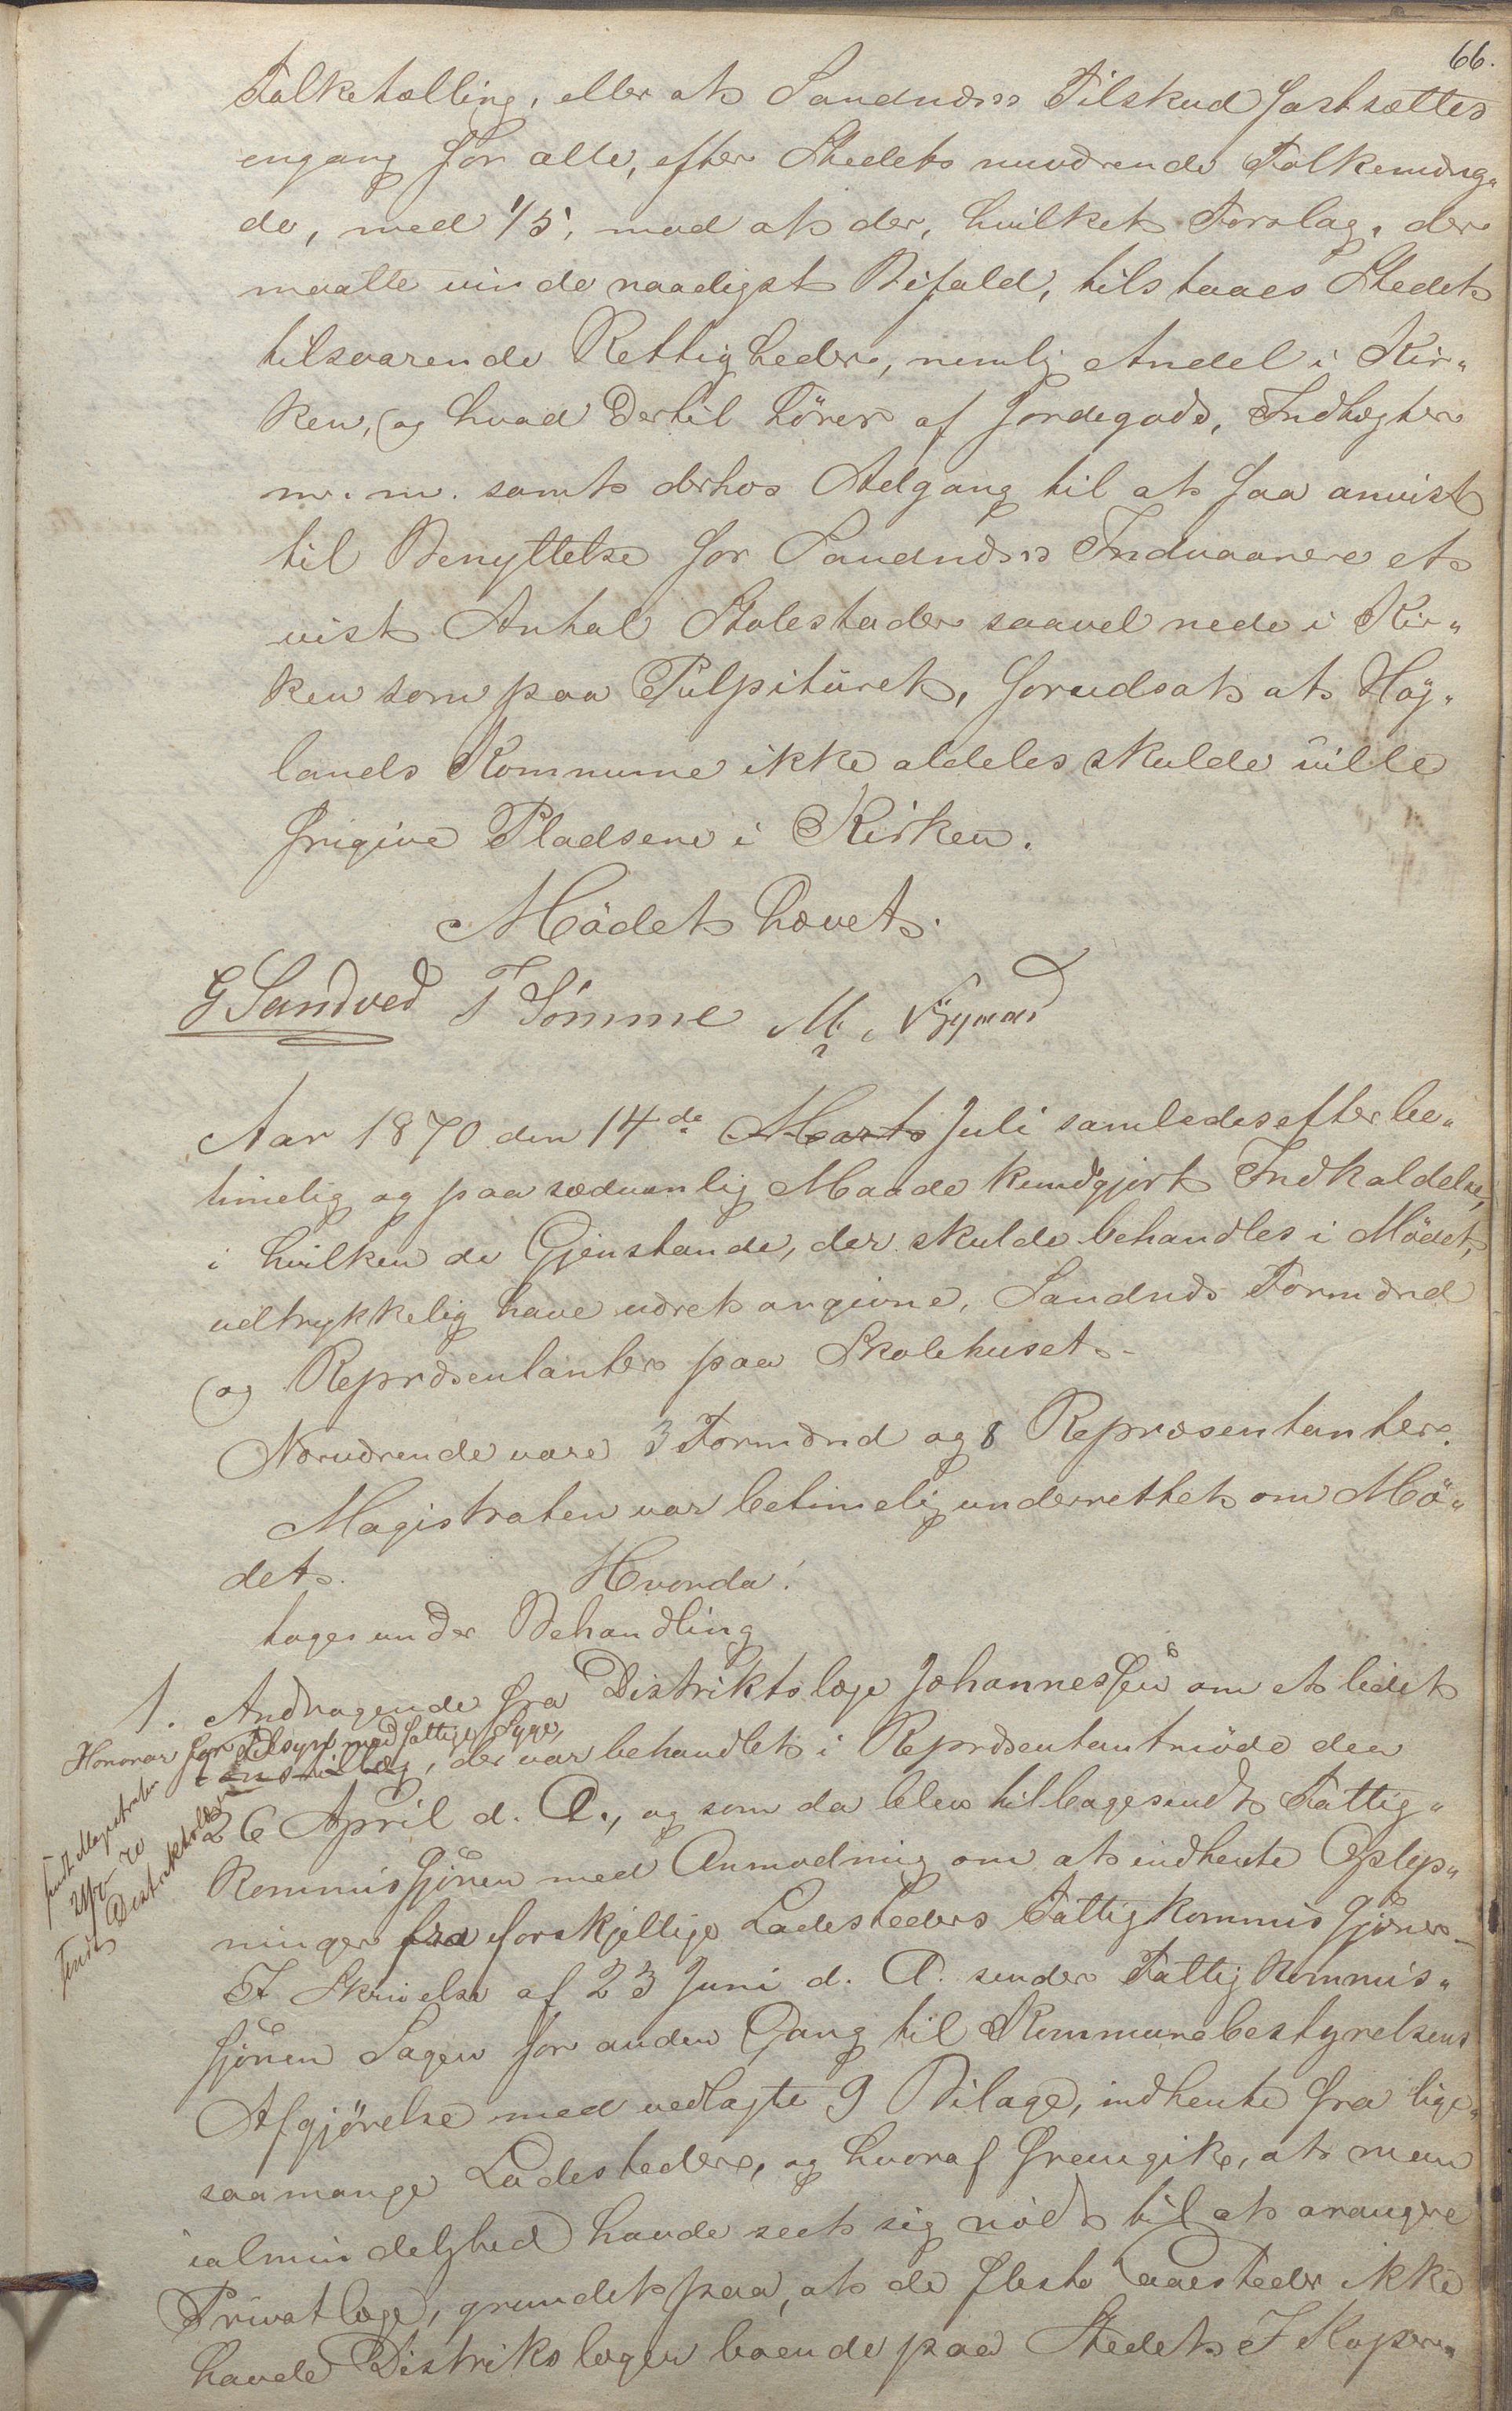 66.
Folketælling, eller at Sandnæs's Tilskud fastsættes
engang for alle, efter Stedets nuværende Folkemæng„
de, med 1/5, mod at der, hvilket Forslag, der
maatte vinde naadigst Bifald, tilstaaes Stedet
tilsvarende Rettigheder, nemlig Andel i Kir„
ken, og hvad dertil hörer af Jordegods, Indtægter
m. m. samt derhos Adgang til at faa anvist
til Benyttelse for Sandnæs's Indvaanere et
vist Antal Stolestader saavel nede i Kir„
ken som paa Pulpitüret, forudsat at Höj„
lands Kommune ikke aldeles skulde ville
frigive Pladsene i Kirken.
Mödet hævet.
G Sandved T Sömme M.
Aar 1870 den 14de Marts Juli samledes efter be„
timelig og paa sædvanlig Maade kundgjort Indkaldelse,
i hvilken de Gjenstande, der skulde behandles i Mödet,
udtrykkelig have været angivne, Sandnæs Formænd
og Repræsentanter paa Skolehuset.
Nærværende vare 3 Formænd og 8 Repræsentanter.
Magistraten var betimelig underrettet om Mö„
det. Hvorda!
toges under Behandling
1. Andragende fra Distriktslæge Johannessen om et lidet
Honorar for Tilsyn med fattige Syge,
Löns tillæg, der var behandlet i Repræsentantmöde den
26 April d. A., og som da blev tilbagesendt Fattig„
Kommissjönen med Anmodning om at indhente Oplys„
ninger fra forskjellige Ladesteders Fattigkommissjöner.
I Skrivelse af 23 Juni d. A. sender Fattigkommis„
sjönen Sagen for anden Gang til Kommunebestyrelsens
Afgjörelse med vedlagte 9 Bilage, indhente fra lige„
saamange Ladesteder, og hvoraf fremgik, at man
ialmindelighed havde seet sig nödt til at arangere
Privatlæge, grundet paa, at de fleste Ladesteder ikke
havde Distrikslægen boende paa Stedet. I Koper„
sendt Magistraten
Sendt Distriktslægen